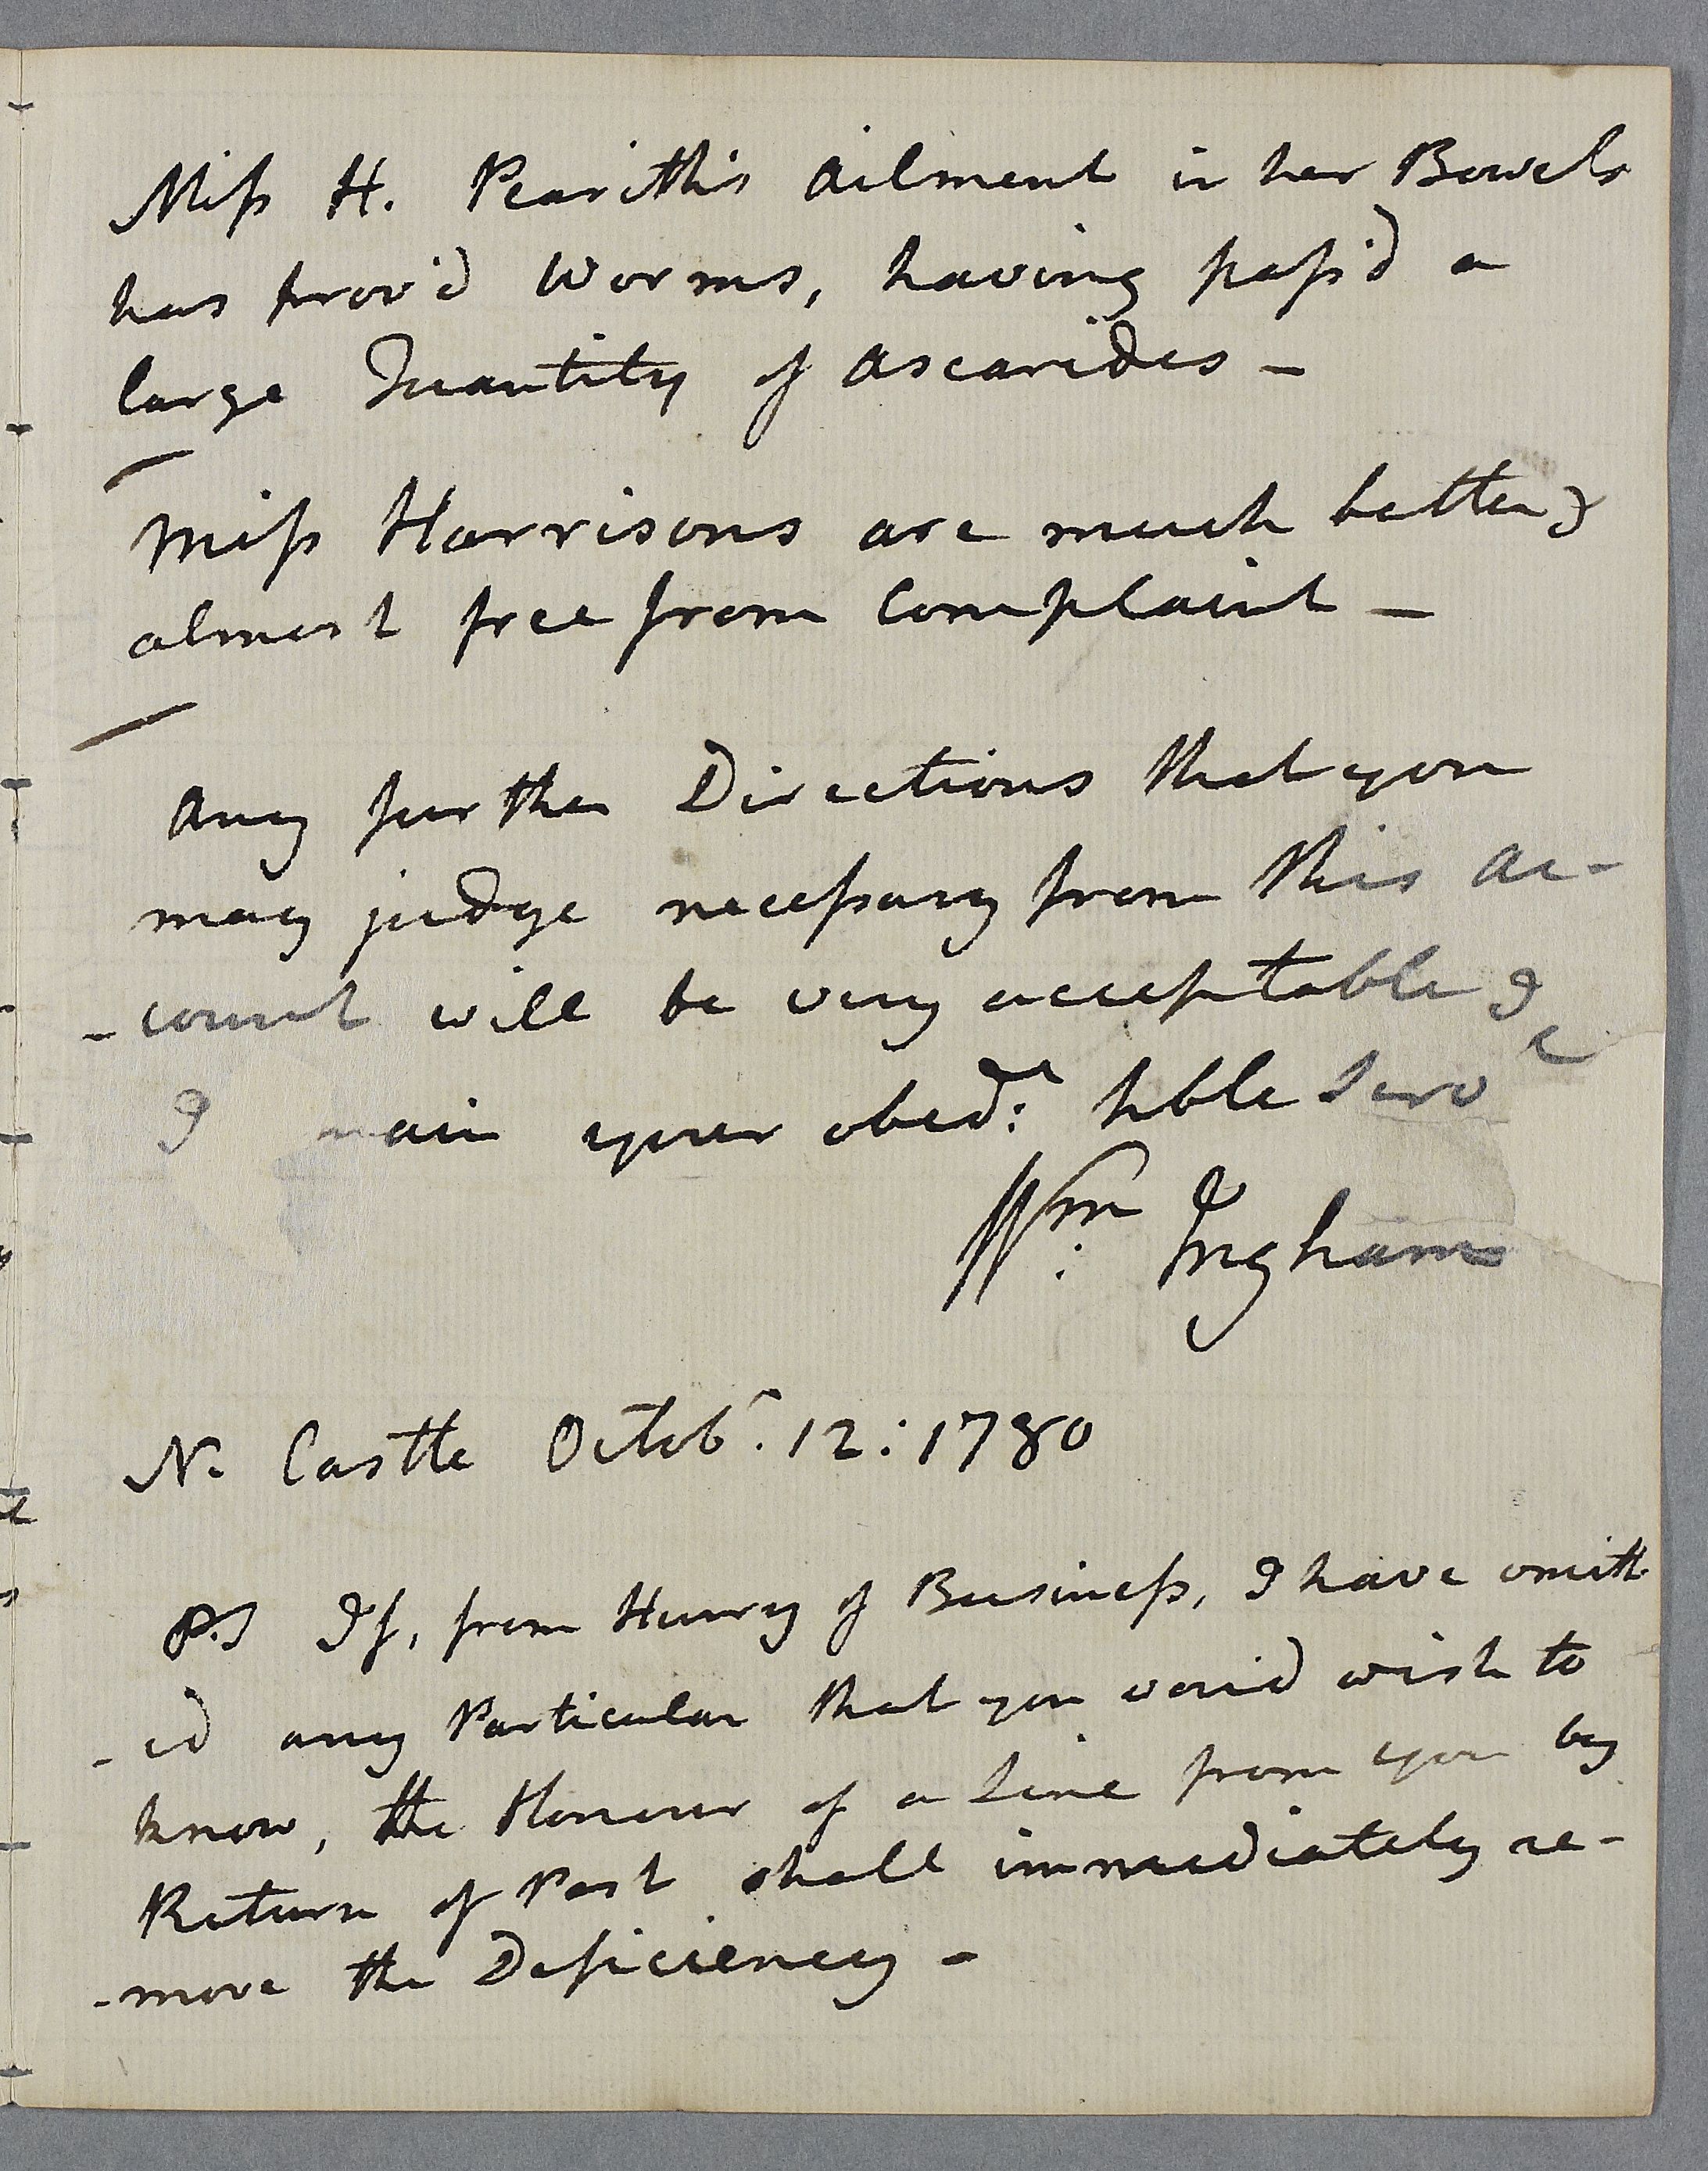 Miss H. Pearith's ailment in her Bowels
has prov'd Worms, having pass'd a
large Quantity of Ascarides —
Miss Harrisons are much better &
almost free from Complaint —
Any further Directions that you
may judge necessary from this ac-
-count will be very acceptable &
I main your obedt. hble Serv
Wm: Ingham
N. Castle Octobr. 12: 1780
P.S If, from Hurry of Business, I have omitt
-ed any Particular that you wou'd wish to
know, the Honour of a Line from you by
Return of Post shall immediately re-
-move the Deficiency -